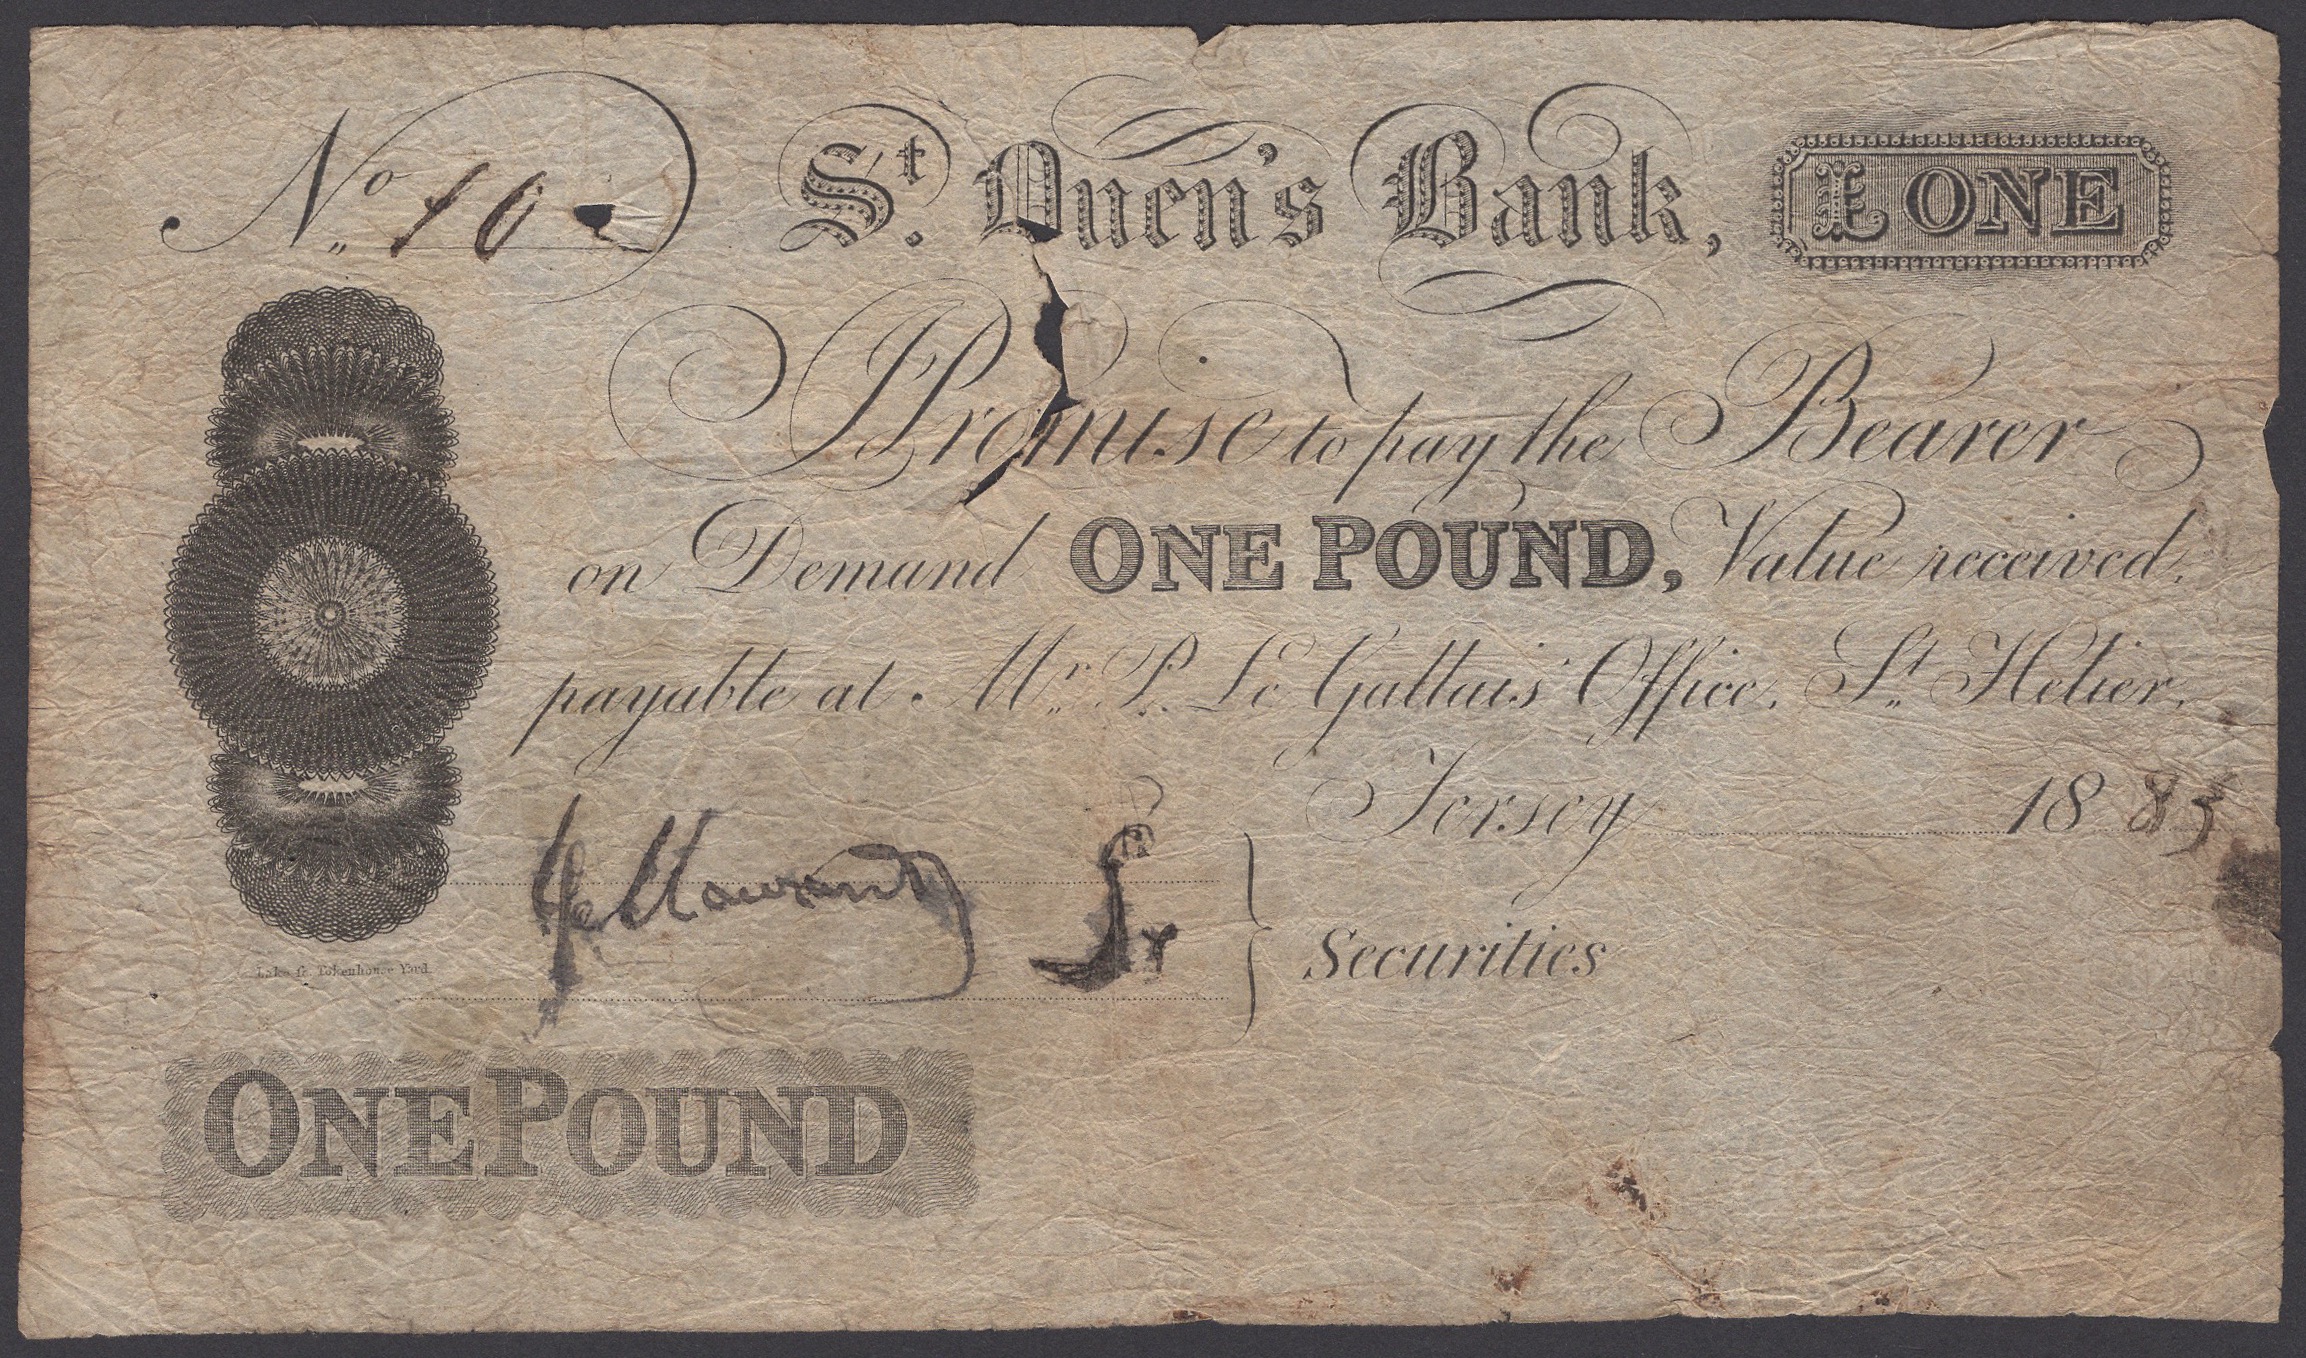 No. 10
St. Ouen's Bank,
£ ONE
I Promise to pay the Bearer
on Demand ONE POUND, Value received,
payable at Mr. P. Le Gallais' Office, St. Helier.
Jersey 1883
Securities
Lake sc. Tokenhouse Yard
ONE POUND